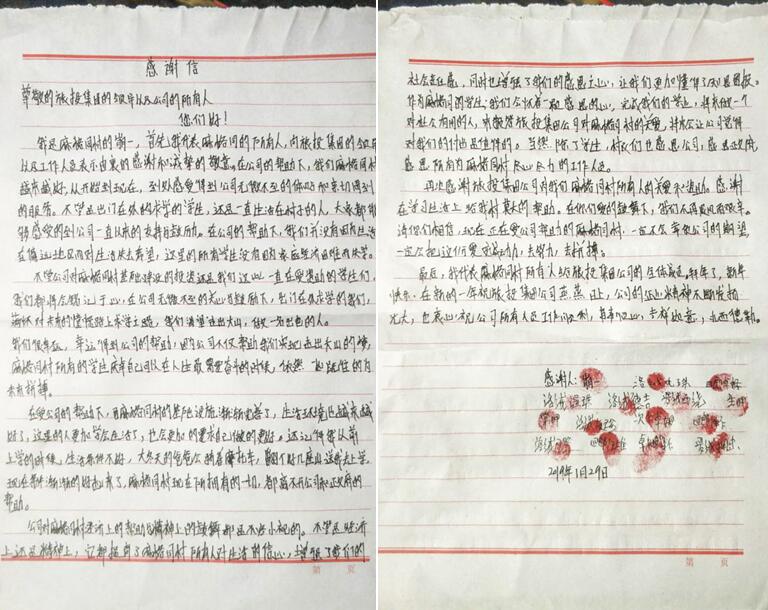 感谢信
尊敬的旅投集团的领导以及公司的所有人
你们好!
我是麻格同村的 一,首先我代表麻格同的所有人,向旅投集团的领导
以及工作人员表示由衷的感谢和诚挚的敬意。在公司的帮助下,我们麻格同村
越来越好,从开始到现在,到处感受得到公司无微不至的 和亲切周到
的服务。不管是出门在外的求学的学生,还是一直生活在村子的人,大家都能
够感受的到公司一直以来的支持与鼓励。在公司的帮助下,我们并没有因为生活
在偏远地区而对生活失去希望,这里的所有学生没有因为家庭经济困难而失学。
不管公司对麻格同村基础建设的投资还是我们这些一直在受资助的学生们,
我们都将会铭记于心,在公司无微不至的关心与鼓励下,出门在外求学的我们,
怀对未来的憧憬踏上求学之路,我们渴望走出大山,做一名出色的人。
我们很幸运,幸运得到公司的帮助,因为公司不仅帮助我们实现走出大山的梦,
麻格同村所有的学生成年自己以在人生最需要奋斗的时候,依然 的为
未来拼搏。
在受公司的帮助下,再麻格同村的基础设施渐渐完善了,生活环境也越来越
好了,这里的人更加学会生活了,也会更加的要求自己做的更好。还记得我从前
上学的时候,生活条件不好,大冬天的爸爸会骑着摩托车,翻个好几座山送我去上学。
现在条件渐渐的好起来了,麻格同村现在所拥有的一切,都离不开公司和政府的
帮助。
公司对麻格同村经济上的帮助与精神上的鼓舞都是不容小视的。不管是经济
上还是精神上,它都提高了麻格同村所有人对生活的信心,增强了我们的
第 页
社会责任感,同时也增强了我们的感恩之心,让我们更加懂得了知恩图报。
作为麻格同的学生,我们会怀着一颗感恩的心,完成我们的学业,将来做一个
对社会有用的人,来报答旅投集团公司对麻格同村的关爱,并永会让公司觉得
对我们的付出是值得的。当然,除了学生,村民们也感恩公司,感恩政府,
感恩所有为麻格同村尽心尽力的工作人员。
再次感谢旅投集团公司对我们麻格同村所有人的关爱和资助。感谢
在学习生活上给我们莫大的帮助。在你们爱的鼓舞下,我们不再畏惧而艰辛。
请你们相信,现在正在受公司帮助的麻格同村,一定不会辜负公司的期望,
一定会把这份爱变成动力,去努力,去拼搏。
最后,我代表麻格同村所有人给旅投集团公司的全体员工,新年了,新年
快乐。在新的一年祝旅投集团公司蒸蒸日上,公司的企业精神不断发扬
光大,也衷心祝公司所有人员工作顺利,身事顺心,吉祥如意,扎西德勒。
感谢人:
2019年1月29日
第 页